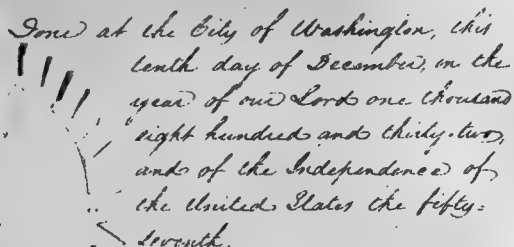 Done at the City of Washington, this
tenth day of December, in the
year of our Lord one thousand
eight hundred and thirty-two,
and of the Independence of
the United States the fifty-
seventh.